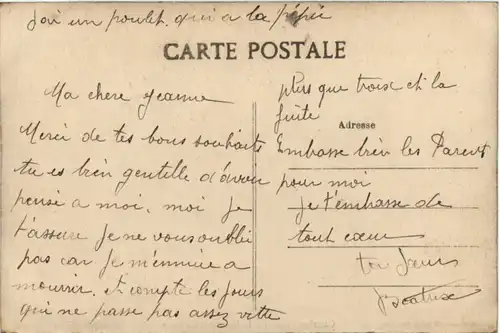 J'ai un poulet qui a la pépie
CARTE POSTALE
Ma chere Jeanne
Merci de tes bons souhaits
tu es bien gentille d'avoir
pensé a moi. moi Je
t'assure Je ne vous oubli
pas car Je m'ennuie a
mourir. et compte les Jours
qui ne passe pas assez vitte
plus que troix et la
fuite
Adresse
Embrasse bien les Parents
pour moi
Je t'embrasse de
tout cœur
ta Sœur
Beatrix